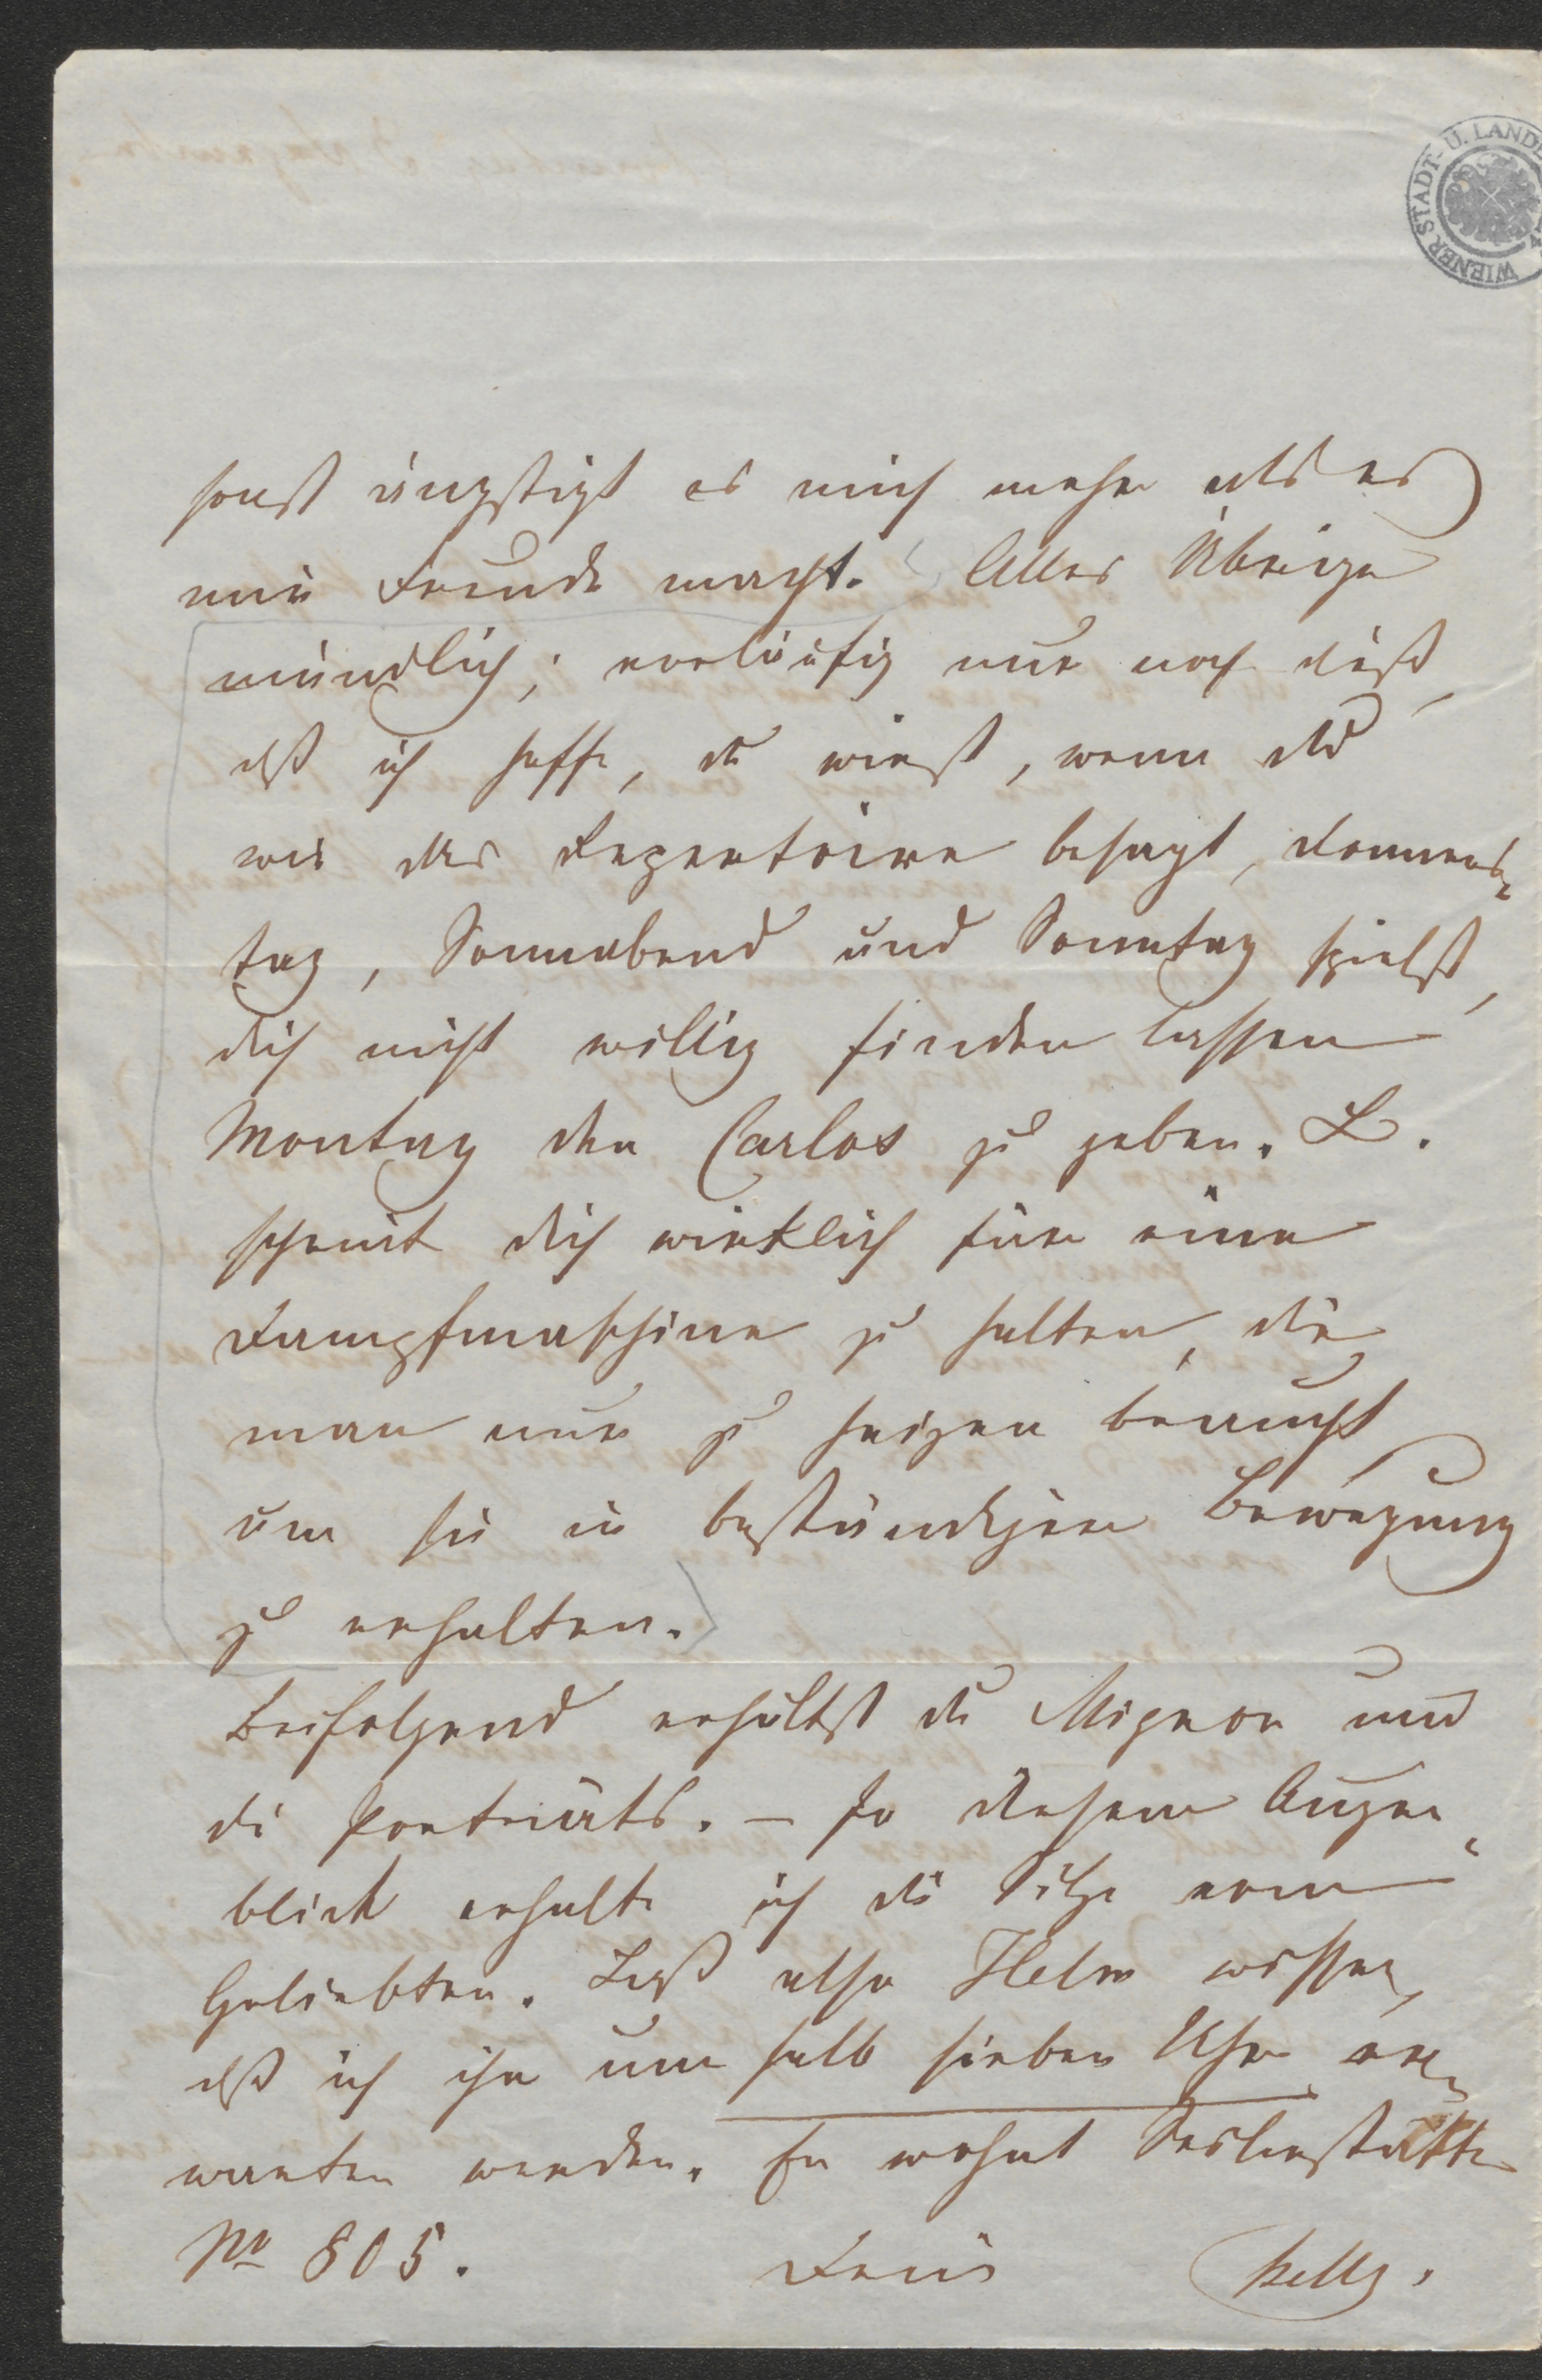 WIENER STADT- U. LANDE
sonst ängstigt es mich mehr als es
mir Freude macht. Alles Übrige
mündlich; vorläufig nur noch dieß,
dß ich hoffe, du wirst, wenn du
wie das Repertoire besagt, Donners-
tag, Sonnabend und Sonntag spielst,
dich nicht willig finden lassen
Montag den Carlos zu geben. L.
scheint dich wirklich für eine
Dampfmaschine zu halten, die
man nur zu heizen braucht
um sie in beständiger Bewegung
zu erhalten.
Beifolgend erhältst du Mignon und
die Porträts. – In diesem Augen-
blick erhalte ich die Sitze vom
Geliebten. Laß also Helm wissen,
dß ich ihn um halb sieben Uhr er-
warten werde. Er wohnt Seilerstätte
No 805.
Dein Betty.